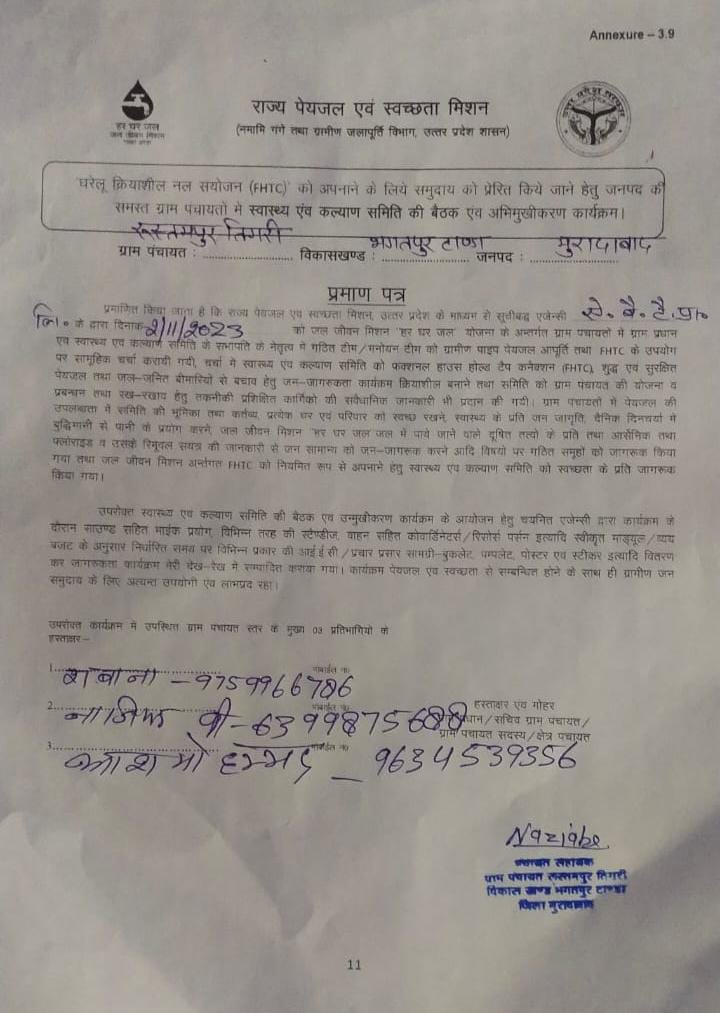 Annexure – 3.9
हर घर जल
जल जीवन मिशन
राज्य पेयजल एवं स्वच्छता मिशन
(नमामि गंगे तथा ग्रामीण जलापूर्ति विभाग, उत्तर प्रदेश शासन)
उत्तर प्रदेश सरकार
'घरेलू क्रियाशील नल संयोजन (FHTC)' को अपनाने के लिये समुदाय को प्रेरित किये जाने हेतु जनपद की
समस्त ग्राम पंचायतो मे स्वास्थ्य एंव कल्याण समिति की बैठक एंव अभिमुखीकरण कार्यक्रम।
ग्राम पंचायत : रूस्तमपुर तिगरी विकासखण्ड : भगतपुर टाण्डा जनपद : मुरादाबाद
प्रमाण पत्र
प्रमाणित किया जाता है कि राज्य पेयजल एवं स्वच्छता मिशन, उत्तर प्रदेश के माध्यम से सूचीबद्ध एजेन्सी से. बै. टै. प्रा०
लि० के द्वारा दिनांक 2/11/2023 को जल जीवन मिशन "हर घर जल" योजना के अन्तर्गत ग्राम पंचायतो में ग्राम प्रधान
एंव स्वास्थ्य एंव कल्याण समिति के सभापति के नेतृत्व में गठित टीम/मनोयन टीम को ग्रामीण पाइप पेयजल आपूर्ति तथा FHTC के उपयोग
पर सामूहिक चर्चा करायी गयी, चर्चा मे स्वास्थ्य एंव कल्याण समिति को फंक्शनल हाउस होल्ड टैप कनेक्शन (FHTC), शुद्ध एवं सुरक्षित
पेयजल तथा जल-जनित बीमारियों से बचाव हेतु जन-जागरुकता कार्यक्रम क्रियाशील बनाने तथा समिति को ग्राम पंचायत की योजना व
प्रबन्धन तथा रख-रखाव हेतु तकनीकी प्रशिक्षित कार्मिकों की सवैधानिक जानकारी भी प्रदान की गयी। ग्राम पंचायतो में पेयजल की
उपलब्धता में समिति की भूमिका तथा कर्तव्य, प्रत्येक घर एवं परिवार को स्वच्छ रखने, स्वास्थ्य के प्रति जन जागृति, दैनिक दिनचर्या में
बुद्धिमानी से पानी के प्रयोग करने, जल जीवन मिशन "हर घर जल जल में पाये जाने वाले दूषित तत्वो के प्रति तथा आर्सेनिक तथा
फ्लोराइड व उसके रिमूवल सयंत्र की जानकारी से जन सामान्य को जन-जागरूक करने आदि विषयो पर गठित समूहों को जागरूक किया
गया तथा जल जीवन मिशन अर्न्तगत FHTC को नियमित रूप से अपनाने हेतु स्वास्थ्य एंव कल्याण समिति को स्वच्छता के प्रति जागरूक
किया गया।
उपरोक्त स्वास्थ्य एंव कल्याण समिति की बैठक एंव उन्मुखीकरण कार्यक्रम के आयोजन हेतु चयनित एजेन्सी द्वारा कार्यक्रम के
दौरान साउण्ड सहित माईक प्रयोग, विभिन्न तरह की स्टैण्डीज, वाहन सहित कोवार्डिनेटर्स/रिसोर्स पर्सन इत्यादि स्वीकृत माड्यूल/व्यय
बजट के अनुसार निर्धारित समय पर विभिन्न प्रकार की आई ई सी/प्रचार प्रसार सामग्री-बुकलेट, पम्पलेट, पोस्टर एंव स्टीकर इत्यादि वितरण
कर जागरूकता कार्यक्रम मेरी देख-रेख मे सम्पादित कराया गया। कार्यक्रम पेयजल एंव स्वच्छता से सम्बन्धित होने के साथ ही ग्रामीण जन
समुदाय के लिए अत्यन्त उपयोगी एंव लाभप्रद रहा।
उपरोक्त कार्यक्रम में उपस्थित ग्राम पंचायत स्तर के मुख्य 03 प्रतिभागियो के
हस्ताक्षर–
1. शबाना – मोबाईल नं0 9759966786
2. नाजिक बी – मोबाईल नं0
3. मोहम्मद – मोबाईल नं0 9634539356
हस्ताक्षर एंव मोहर
प्रधान/सचिव ग्राम पंचायत/
ग्राम पंचायत सदस्य/क्षेत्र पंचायत
Naziabe
पंचायत सहायक
ग्राम पंचायत रूस्तमपुर तिगरी
विकास खण्ड भगतपुर टाण्डा
जिला मुरादाबाद
11